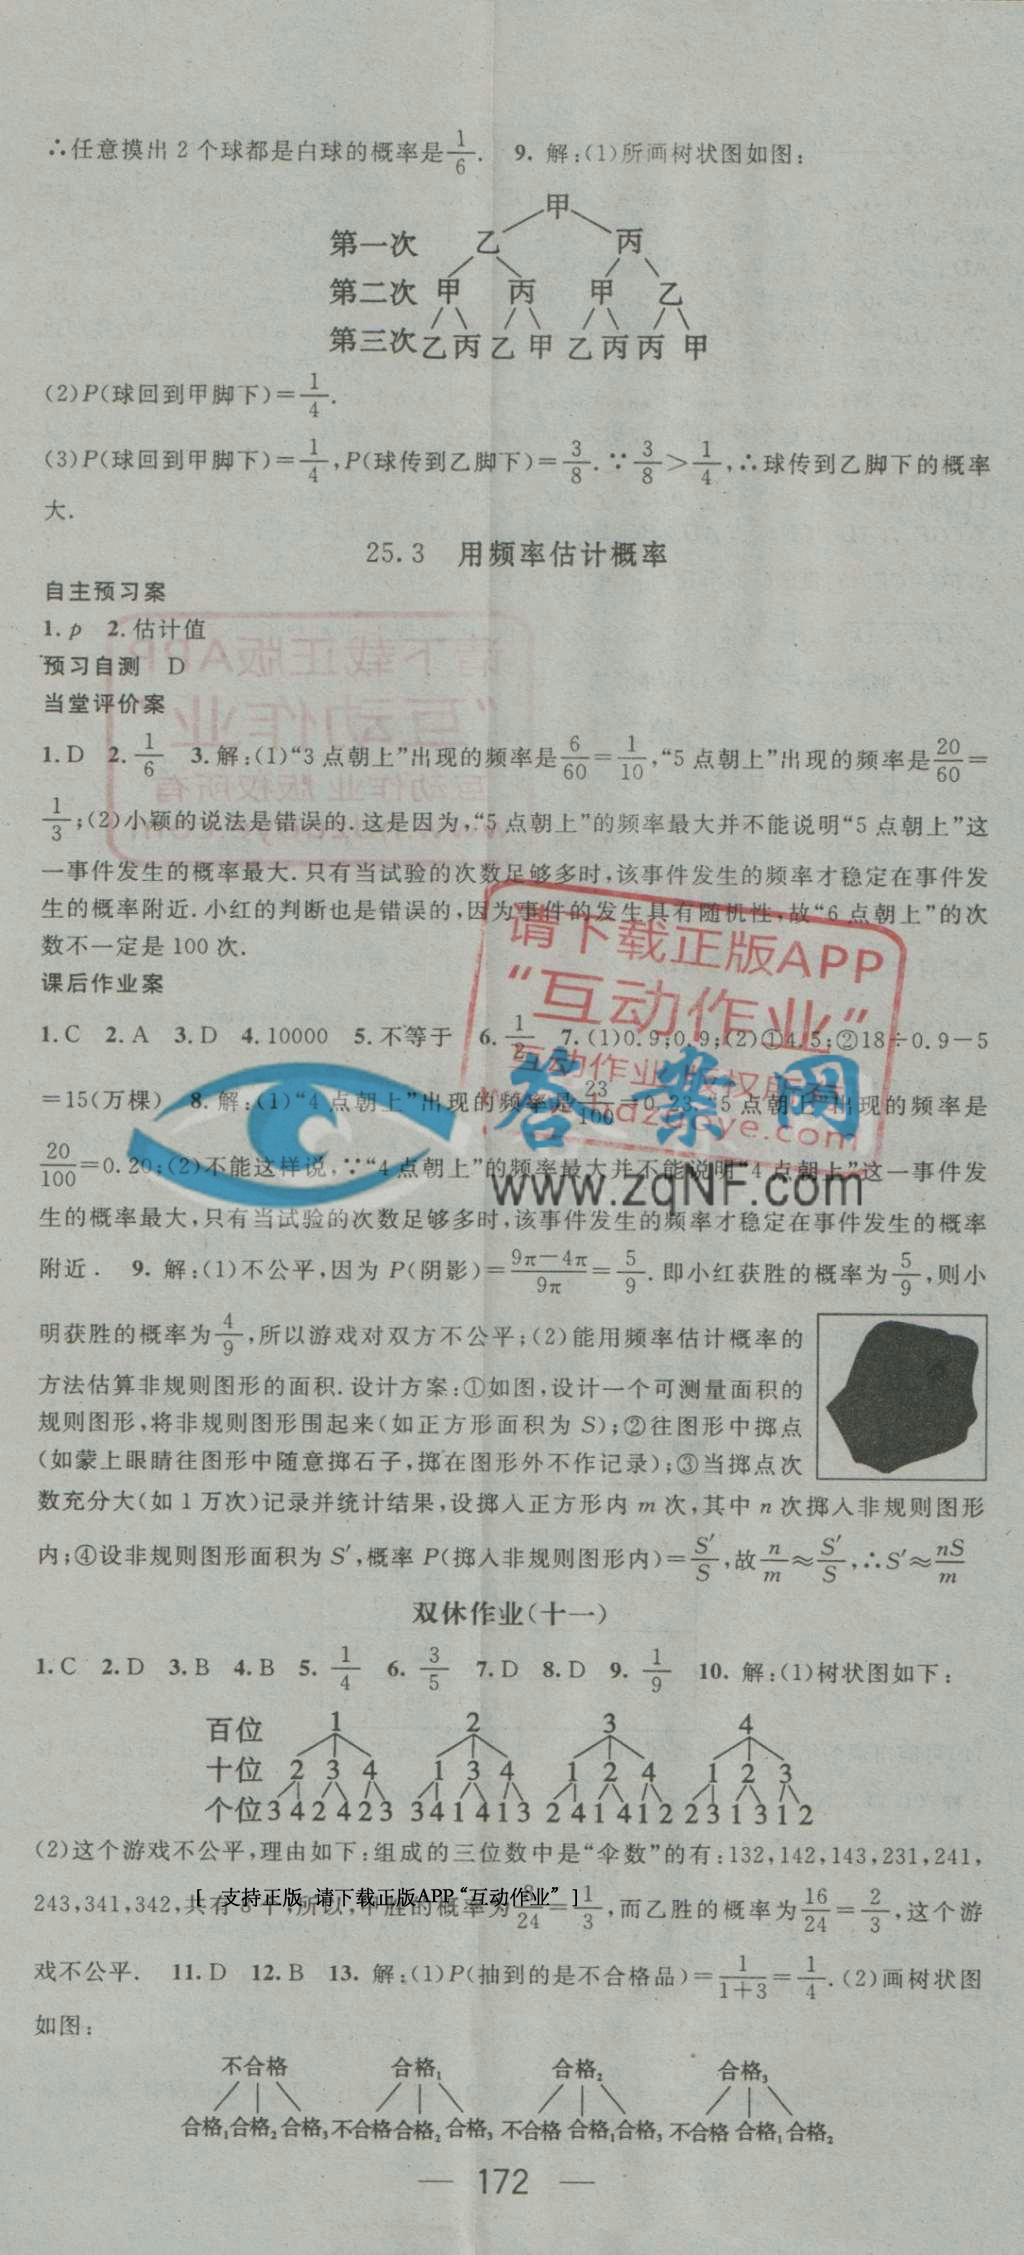 ∴任意摸出 2 个球都是白球的概率是1/6. 9. 解:(1)所画树状图如图:
甲
第一次 乙 丙
第二次 甲 丙 甲 乙
第三次 乙 丙 乙 甲 乙 丙 丙 甲
(2)P(球回到甲脚下)=1/4.
(3)P(球回到甲脚下)=1/4,P(球传到乙脚下)=3/8.∵3/8>1/4,∴球传到乙脚下的概率
大.
25.3 用频率估计概率
自主预习案
1. p 2. 估计值
预习自测 D
当堂评价案
1. D 2. 1/6 3. 解:(1)“3 点朝上”出现的频率是6/60=1/10,“5 点朝上”出现的频率是20/60=
1/3;(2)小颖的说法是错误的. 这是因为,“5 点朝上”的频率最大并不能说明“5 点朝上”这
一事件发生的概率最大. 只有当试验的次数足够多时,该事件发生的频率才稳定在事件发
生的概率附近. 小红的判断也是错误的,因为事件的发生具有随机性,故“6 点朝上”的次
数不一定是 100 次.
课后作业案
1. C 2. A 3. D 4. 10000 5. 不等于 6. 1/2 7. (1)0.9;0.9;(2)①4.5;②18÷0.9-5
=15(万棵) 8. 解:(1)“4 点朝上”出现的频率是23/100=0.23,“5 点朝上”出现的频率是
20/100=0.20;(2)不能这样说,∵“4 点朝上”的频率最大并不能说明“4 点朝上”这一事件发
生的概率最大,只有当试验的次数足够多时,该事件发生的频率才稳定在事件发生的概率
附近. 9. 解:(1)不公平,因为 P(阴影)=(9π-4π)/9π=5/9. 即小红获胜的概率为5/9,则小
明获胜的概率为4/9,所以游戏对双方不公平;(2)能用频率估计概率的
方法估算非规则图形的面积. 设计方案:①如图,设计一个可测量面积的
规则图形,将非规则图形围起来(如正方形面积为 S);②往图形中掷点
(如蒙上眼睛往图形中随意掷石子,掷在图形外不作记录);③当掷点次
数充分大(如 1 万次)记录并统计结果,设掷入正方形内 m 次,其中 n 次掷入非规则图形
内;④设非规则图形面积为 S′,概率 P(掷入非规则图形内)=S′/S,故n/m≈S′/S,∴S′≈nS/m
双休作业(十一)
1. C 2. D 3. B 4. B 5. 1/4 6. 3/5 7. D 8. D 9. 1/9 10. 解:(1)树状图如下:
百位 1 2 3 4
十位 2 3 4 1 3 4 1 2 4 1 2 3
个位 3 4 2 4 2 3 3 4 1 4 1 3 2 4 1 4 1 2 2 3 1 3 1 2
(2)这个游戏不公平,理由如下:组成的三位数中是“伞数”的有:132,142,143,231,241,
243,341,342,共有 8 个,所以,甲胜的概率为8/24=1/3,而乙胜的概率为16/24=2/3,这个游
[ 支持正版 请下载正版APP“互动作业” ]
戏不公平. 11. D 12. B 13. 解:(1)P(抽到的是不合格品)=1/(1+3)=1/4. (2)画树状图
如图:
不合格 合格₁ 合格₂ 合格₃
合格₁ 合格₂ 合格₃ 不合格 合格₂ 合格₃ 不合格 合格₁ 合格₃ 不合格 合格₁ 合格₂
— 172 —
请下载正版APP
“互动作业”
答案网
www.zqNF.com